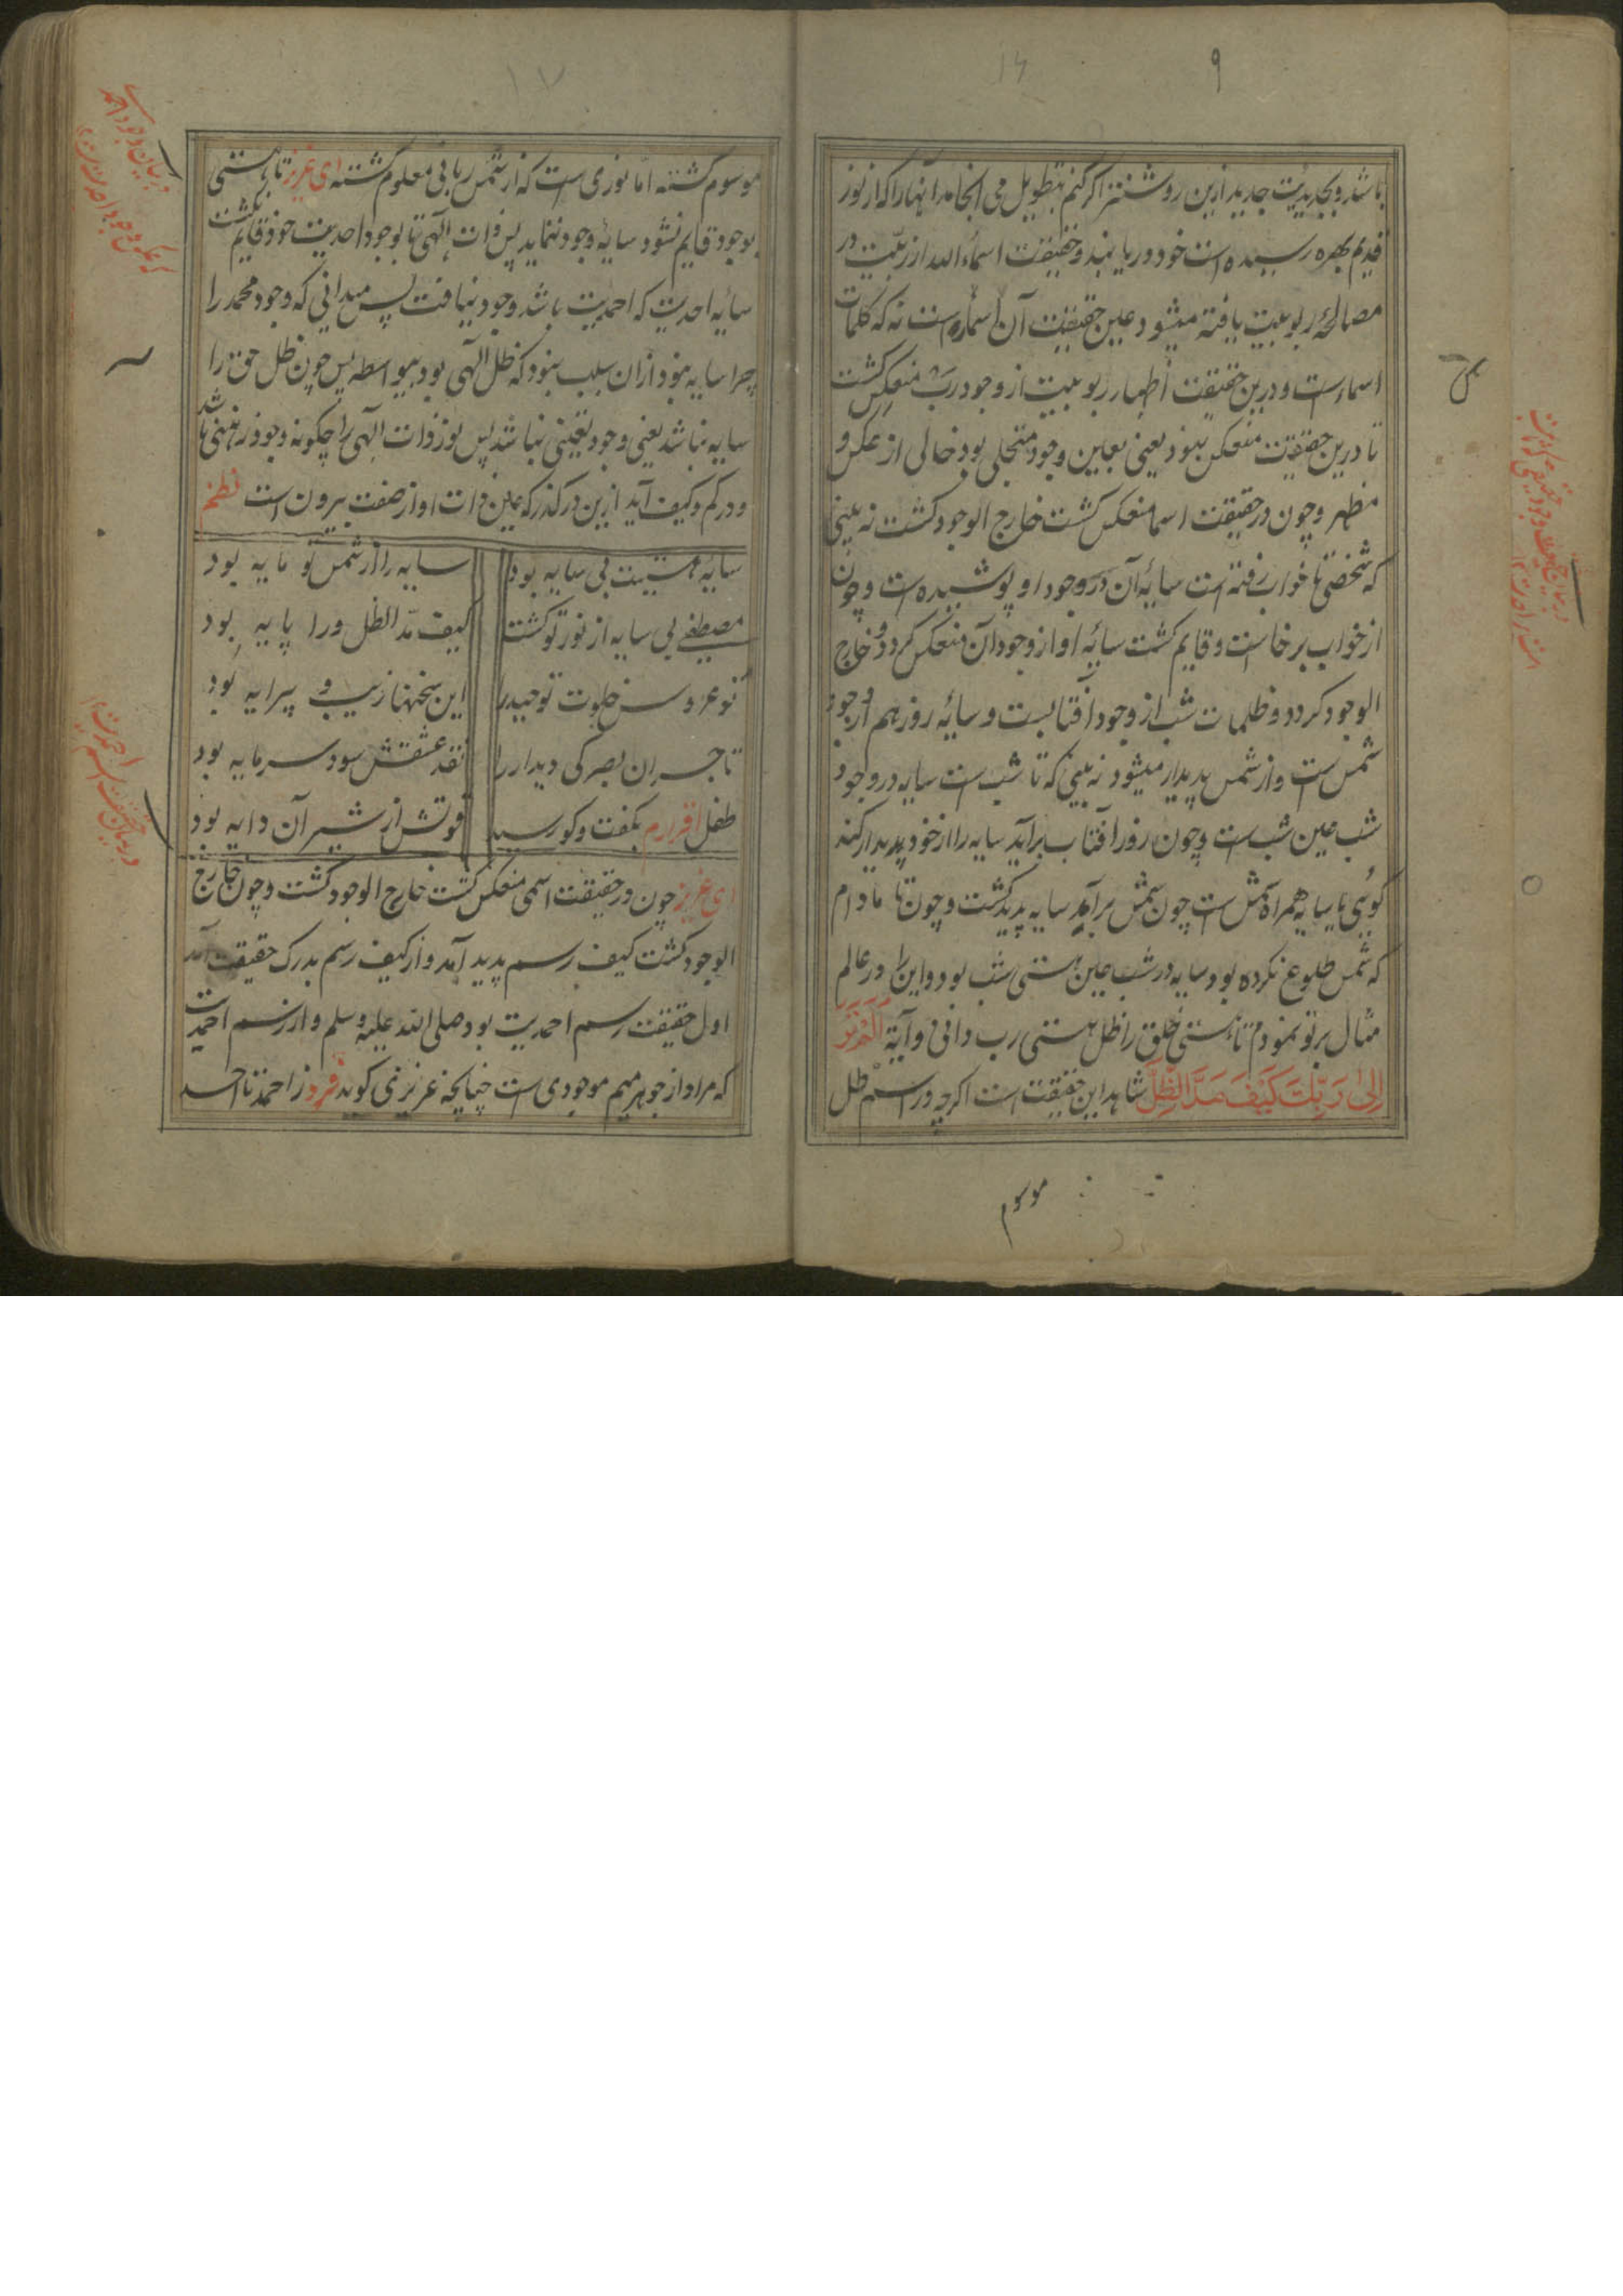 ۹
۱۶
باشد و بجدیدیت جدید ازین روشنتر اگر کنم بتطویل می انجامد آنها را که از نور
قدم بهره رسیده است خود دریابند و حقیقت اسماء الله از ربّیت در
مصالحهٔ ربوبیت یافته میشود عین حقیقت آن اسماء است نه که کلمات
اسماءست و درین حقیقت اظهار ربوبیت از وجود رب منعکس گشت
تا درین حقیقت منعکس نبود یعنی بعاین وجود متجلی بود خالی از عکس و
مظهر و چون در حقیقت اسما منعکس گشت خارج الوجود گشت نه بینی
که شخصی تا خواب رفته است سایهٔ آن در وجود او پوشیده است و چون
از خواب برخاست و قایم گشت سایهٔ او از وجود آن منعکس گردد و خارج
الوجود گردد و ظلمات شب از وجود آفتابست و سایهٔ روز هم از وجود
شمس است و از شمس پدیدار میشود نه بینی که تا شب است سایه در وجود
شب عین شب است و چون روز آفتاب برآید سایه را از خود پدیدار کند
گویی تا سایه همراه شمس است چون شمس برآمد سایه پدید گشت و چون تا مادام
که شمس طلوع نکرده بود سایه در شب عین هستی شب بود و این را در عالم
مثال بر تو نمودم تا هستی خلق را ظل هستی رب دانی و آیة اَلَمْ تَرَ
اِلیٰ رَبِّکَ کَیْفَ مَدَّ الظِّلَّ شاهد این حقیقت است اگرچه در اسم ظل
موسوم
۱۷
موسوم گشته اما نوری است که از شمس ربانی معلوم گشته ای عزیز تا هستی
بوجود قایم نشود سایهٔ وجود ننماید پس ذات الهی تا بوجود احدیت خود قایم نگشت
سایه احدیت که احمدیت باشد وجود نیافت پس میدانی که وجود محمد را
چرا سایه نبود از ان سبب نبود که ظل الهی بود بیواسطه پس چون ظل حق را
سایه نباشد یعنی وجود تعینی نباشد پس نور ذات الهی را چگونه وجود رهنی باشد
و در کم و کیف آید ازین درگذر که عین ذات او از صفت بیرون است نظم
سایهٔ هستیت بی سایه بود سایه را از شمس تو مایه بود
مصطفی بی سایه از نور تو گشت کیف مدّ الظل ورا پایه بود
نو عروس خلوت توحید را این سخنها زیب و پیرایه بود
تاجران بصرکی دیدار را نقد عشقش سود سرمایه بود
طفل اقرارم بگفت و گو رسید قوتش از شیر آن دایه بود
ای عزیز چون در حقیقت اسمی منعکس گشت خارج الوجود گشت و چون خارج
الوجود گشت کیف رسم پدید آمد و از کیف رسم بدرک حقیقت آمد
اول حقیقت رسم احمدیت بود صلی الله علیه وسلم و از رسم احمدیت
که مراد از جوهر میم موجودی است چنانچه عزیزی گوید فرد ز احمد تا احد